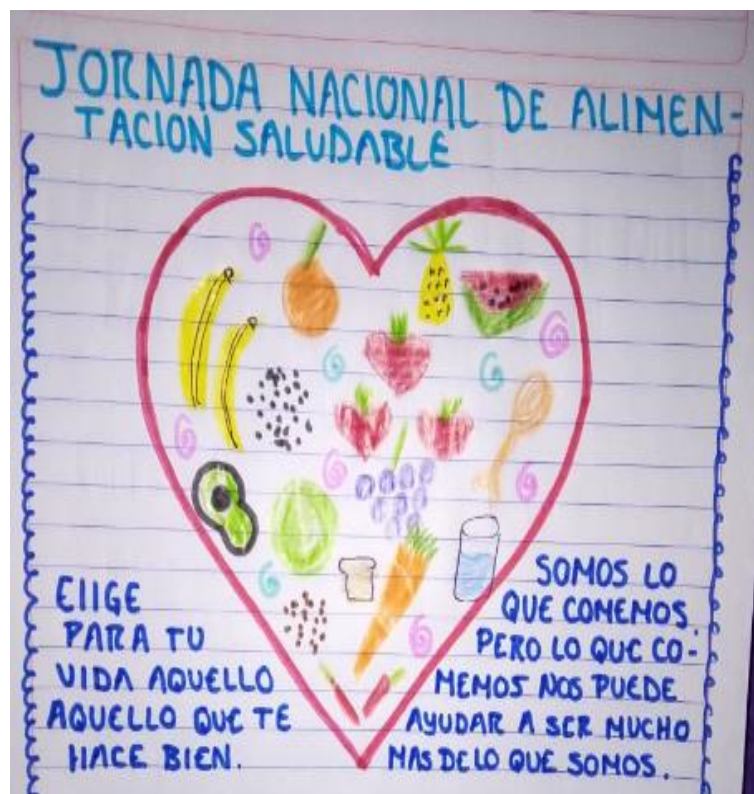 JORNADA NACIONAL DE ALIMEN-
TACION SALUDABLE
EIIGE
PARA TU
VIDA AQUELLO
AQUELLO QUE TE
HACE BIEN.
SOMOS LO
QUE COMEMOS.
PERO LO QUE CO-
MEMOS NOS PUEDE
AYUDAR A SER MUCHO
MAS DE LO QUE SOMOS.